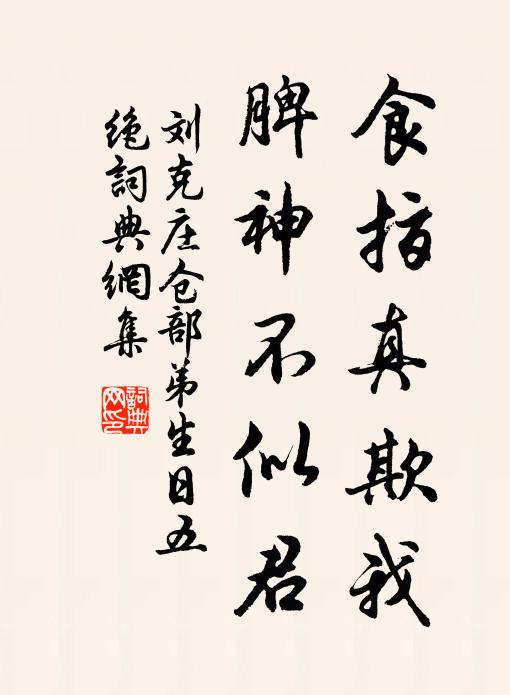 食指真欺我
脾神不似君
刘克庄仓部弟生日五
绝詞典網集
詞典网印